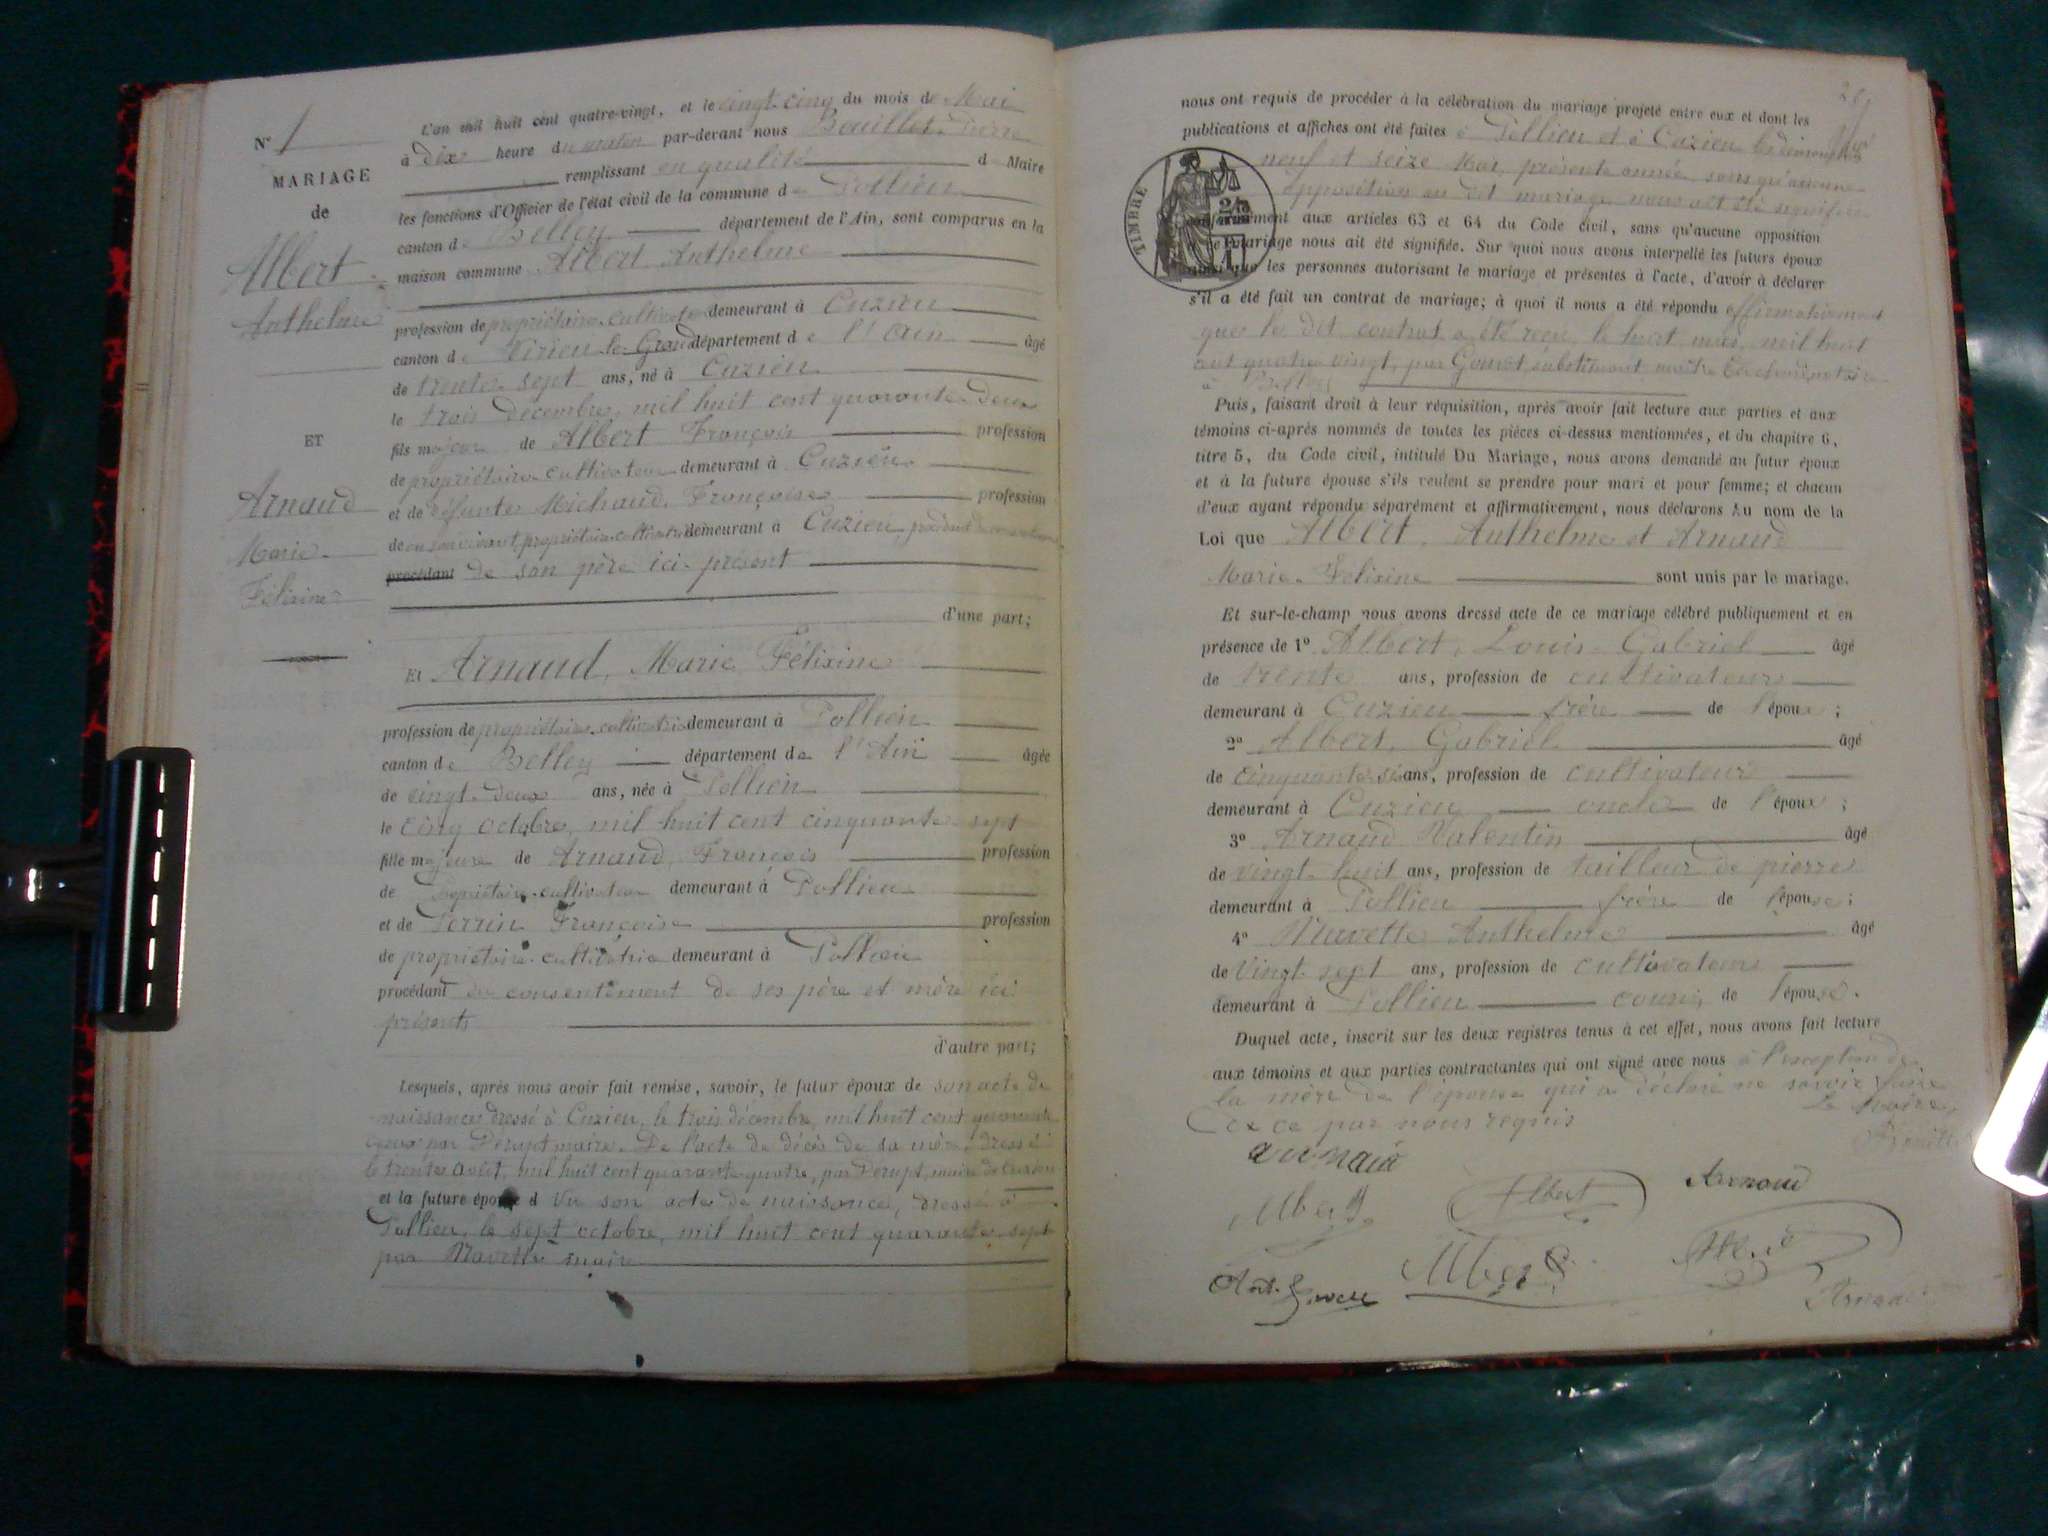 N° 1
MARIAGE
de
Albert
Anthelme
ET
Arnaud
Marie
Félixine
L'an mil huit cent quatre-vingt, et le vingt-cinq du mois de Mai
à dix heure du matin par-devant nous Bouillet Pierre
remplissant en qualité de Maire
les fonctions d'Officier de l'état civil de la commune de Pollieu
canton de Belley département de l'Ain, sont comparus en la
maison commune Albert Anthelme
profession de propriétaire-cultivateur demeurant à Cuzieu
canton de Virieu-le-Grand département de l'Ain âgé
de trente-sept ans, né à Cuzieu
le trois décembre, mil huit cent quarante-deux
fils majeur de Albert François profession
de propriétaire-cultivateur demeurant à Cuzieu
et de défunte Michaud Françoise profession
de en son vivant propriétaire-cultivatrice demeurant à Cuzieu, procédant du consentement
procédant de son père ici présent
d'une part;
Et Arnaud, Marie Félixine
profession de propriétaire-cultivatrice demeurant à Pollieu
canton de Belley département de l'Ain âgée
de vingt-deux ans, née à Pollieu
le cinq octobre, mil huit cent cinquante-sept
fille majeure de Arnaud, François profession
de Propriétaire-cultivateur demeurant à Pollieu
et de Perrin Françoise profession
de propriétaire-cultivatrice demeurant à Pollieu
procédant du consentement de ses père et mère ici
présents
d'autre part;
Lesquels, après nous avoir fait remise, savoir, le futur époux de son acte de
naissance dressé à Cuzieu, le trois décembre, mil huit cent quarante
deux par Derupt maire. De l'acte de décès de sa mère, dressé
le trente août, mil huit cent quarante-quatre, par Derupt, maire de Cuzieu
et la future épouse d Vu son acte de naissance, dressé à
Pollieu, le sept octobre, mil huit cent quarante-sept
par Mavette maire
nous ont requis de procéder à la célébration du mariage projeté entre eux et dont les
publications et affiches ont été faites à Pollieu et à Cuzieu les dimanches
neuf et seize Mai, présente année, sans qu'aucune
oppositions au dit mariage nous ait été signifiée
TIMBRE
conformément aux articles 63 et 64 du Code civil, sans qu'aucune opposition
ce mariage nous ait été signifiée. Sur quoi nous avons interpellé les futurs époux
ainsi que les personnes autorisant le mariage et présentes à l'acte, d'avoir à déclarer
s'il a été fait un contrat de mariage; à quoi il nous a été répondu affirmativement
que le dit contrat a été reçu, le huit mai, mil huit
cent quatre-vingt, par Gouvet, substituant maître notaire
à Belley
Puis, faisant droit à leur réquisition, après avoir fait lecture aux parties et aux
témoins ci-après nommés de toutes les pièces ci-dessus mentionnées, et du chapitre 6,
titre 5, du Code civil, intitulé Du Mariage, nous avons demandé au futur époux
et à la future épouse s'ils veulent se prendre pour mari et pour femme; et chacun
d'eux ayant répondu séparément et affirmativement, nous déclarons Au nom de la
Loi que Albert, Anthelme et Arnaud
Marie-Félixine sont unis par le mariage.
Et sur-le-champ nous avons dressé acte de ce mariage célébré publiquement et en
présence de 1° Albert, Louis-Gabriel âgé
de trente ans, profession de cultivateur
demeurant à Cuzieu frère de l'époux;
2° Albert, Gabriel âgé
de cinquante-six ans, profession de cultivateur
demeurant à Cuzieu oncle de l'époux;
3° Arnaud Valentin âgé
de vingt-huit ans, profession de tailleur de pierre
demeurant à Pollieu frère de l'épouse;
4° Mavette Anthelme âgé
de vingt-sept ans, profession de cultivateur
demeurant à Pollieu cousin de l'épouse.
Duquel acte, inscrit sur les deux registres tenus à cet effet, nous avons fait lecture
aux témoins et aux parties contractantes qui ont signé avec nous à l'exception de
la mère de l'épouse qui a déclaré ne savoir faire
de ce par nous requis
Le Maire,
Arnaud
Albert
Albert
Arnaud
Albert
Arnaud